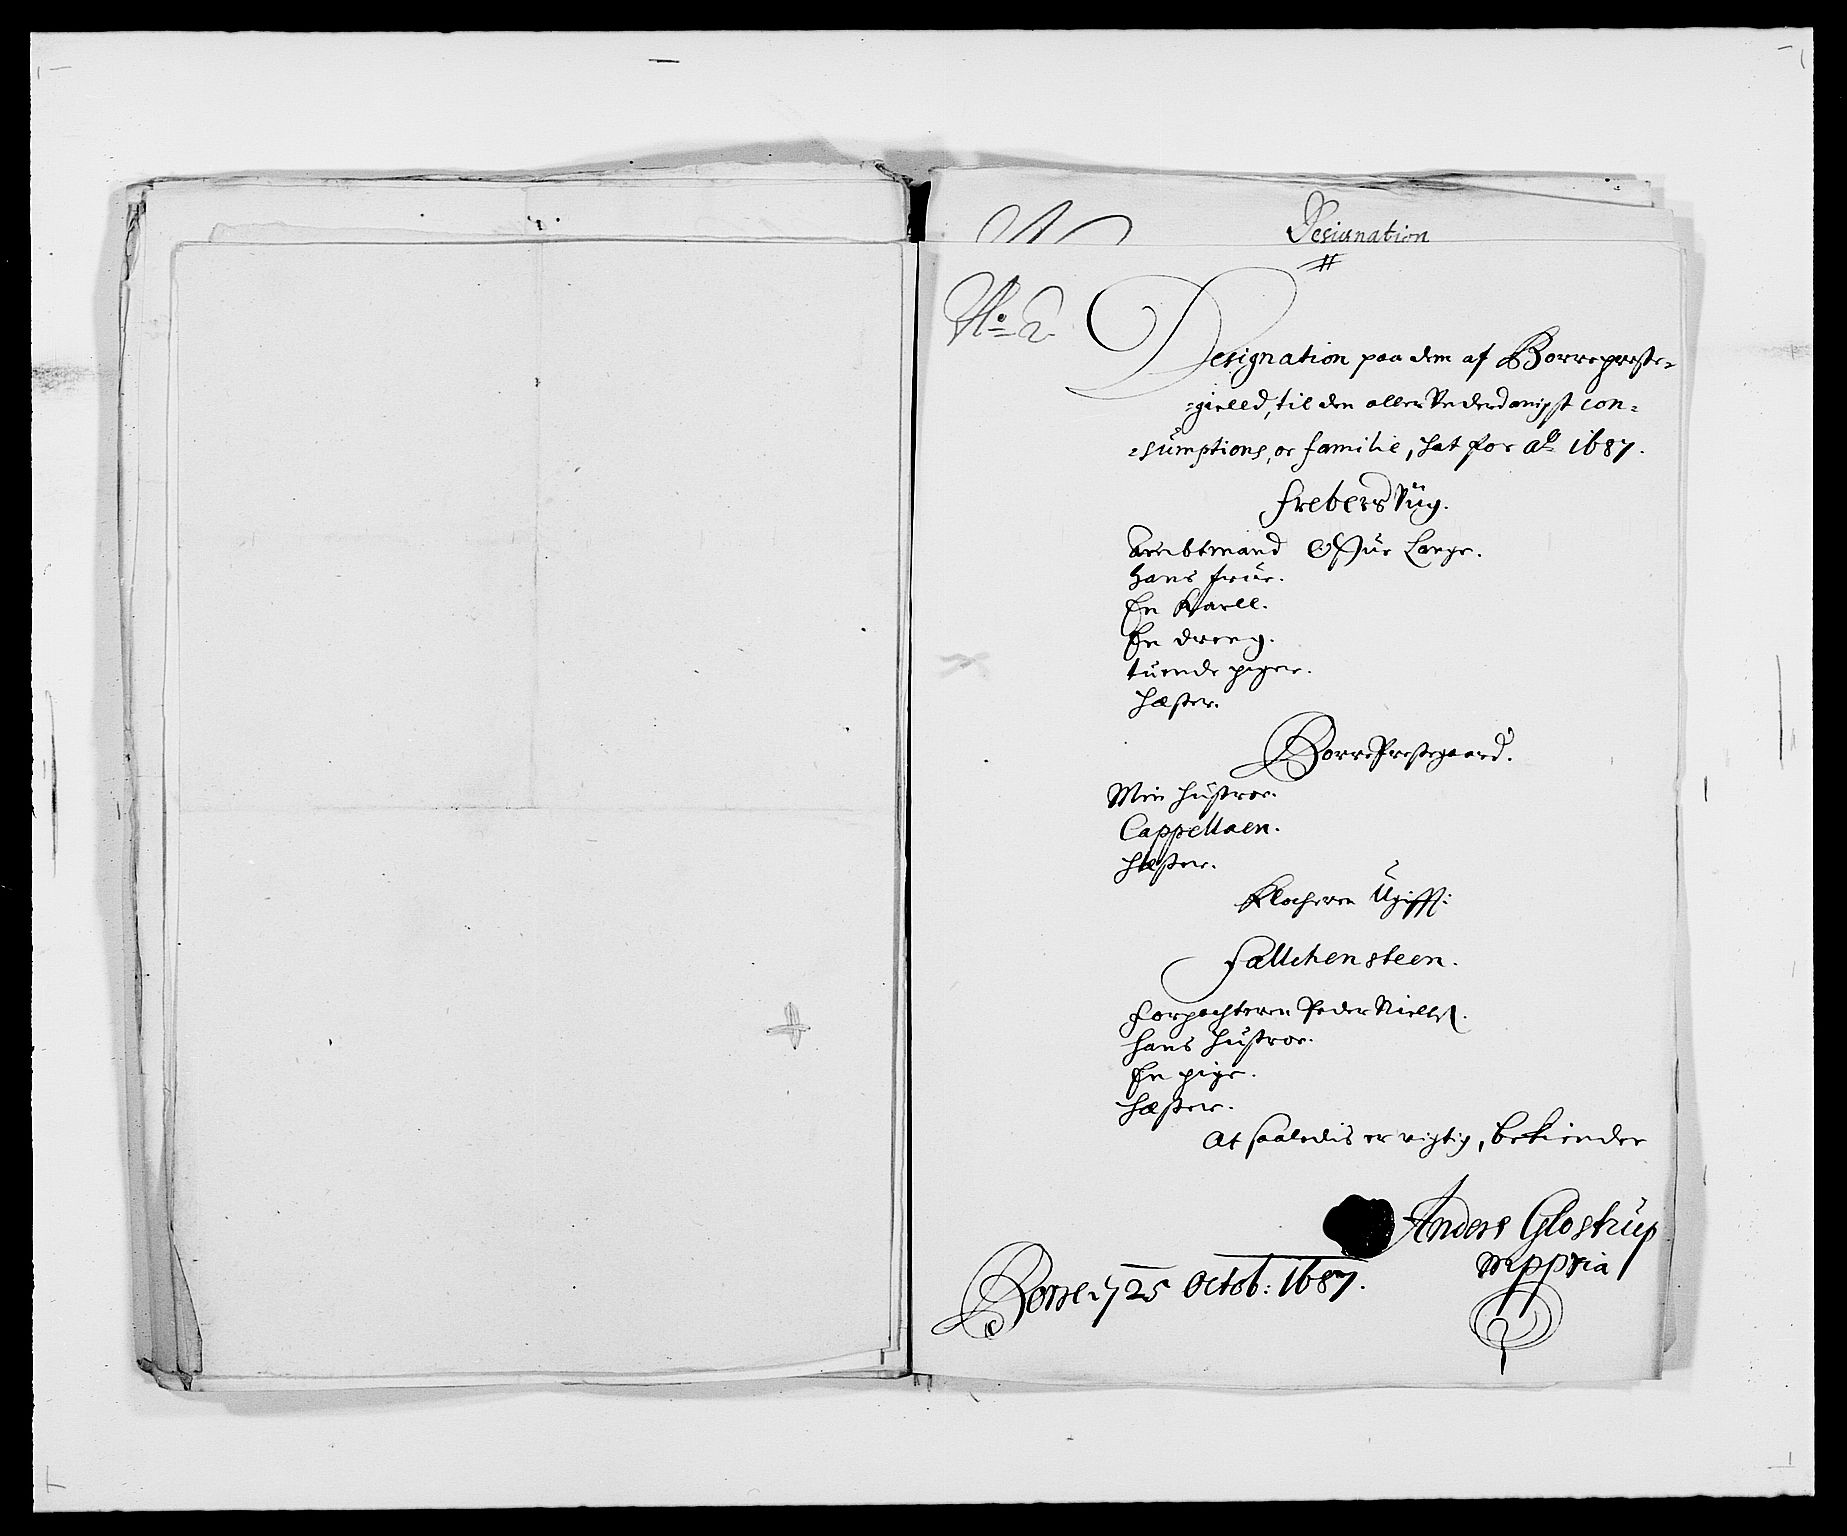 Designation
No 2.
Designation paa dem af Borrepreste-
-gielld, til den allerunderdanigst con-
-sumptions, oc familie, skat for Ao 1687.
Frebersvüg.
Ambtmand Offüe Lange.
Hans früe.
En Karll.
En dreng.
tüende piger.
Hæster.
BorrePrestegaard.
Min Hüstroe.
Cappellaen.
Hæster.
Klocheren Ugifft:
Fallchensteen.
Forpachteren Peder Niellss.
Hans Hüstroe.
En pige.
Hæster.
At saaledis er rigtig, bekiender
Anders Glostrüp
Mppria
Borre, 25 Octob: 1687.